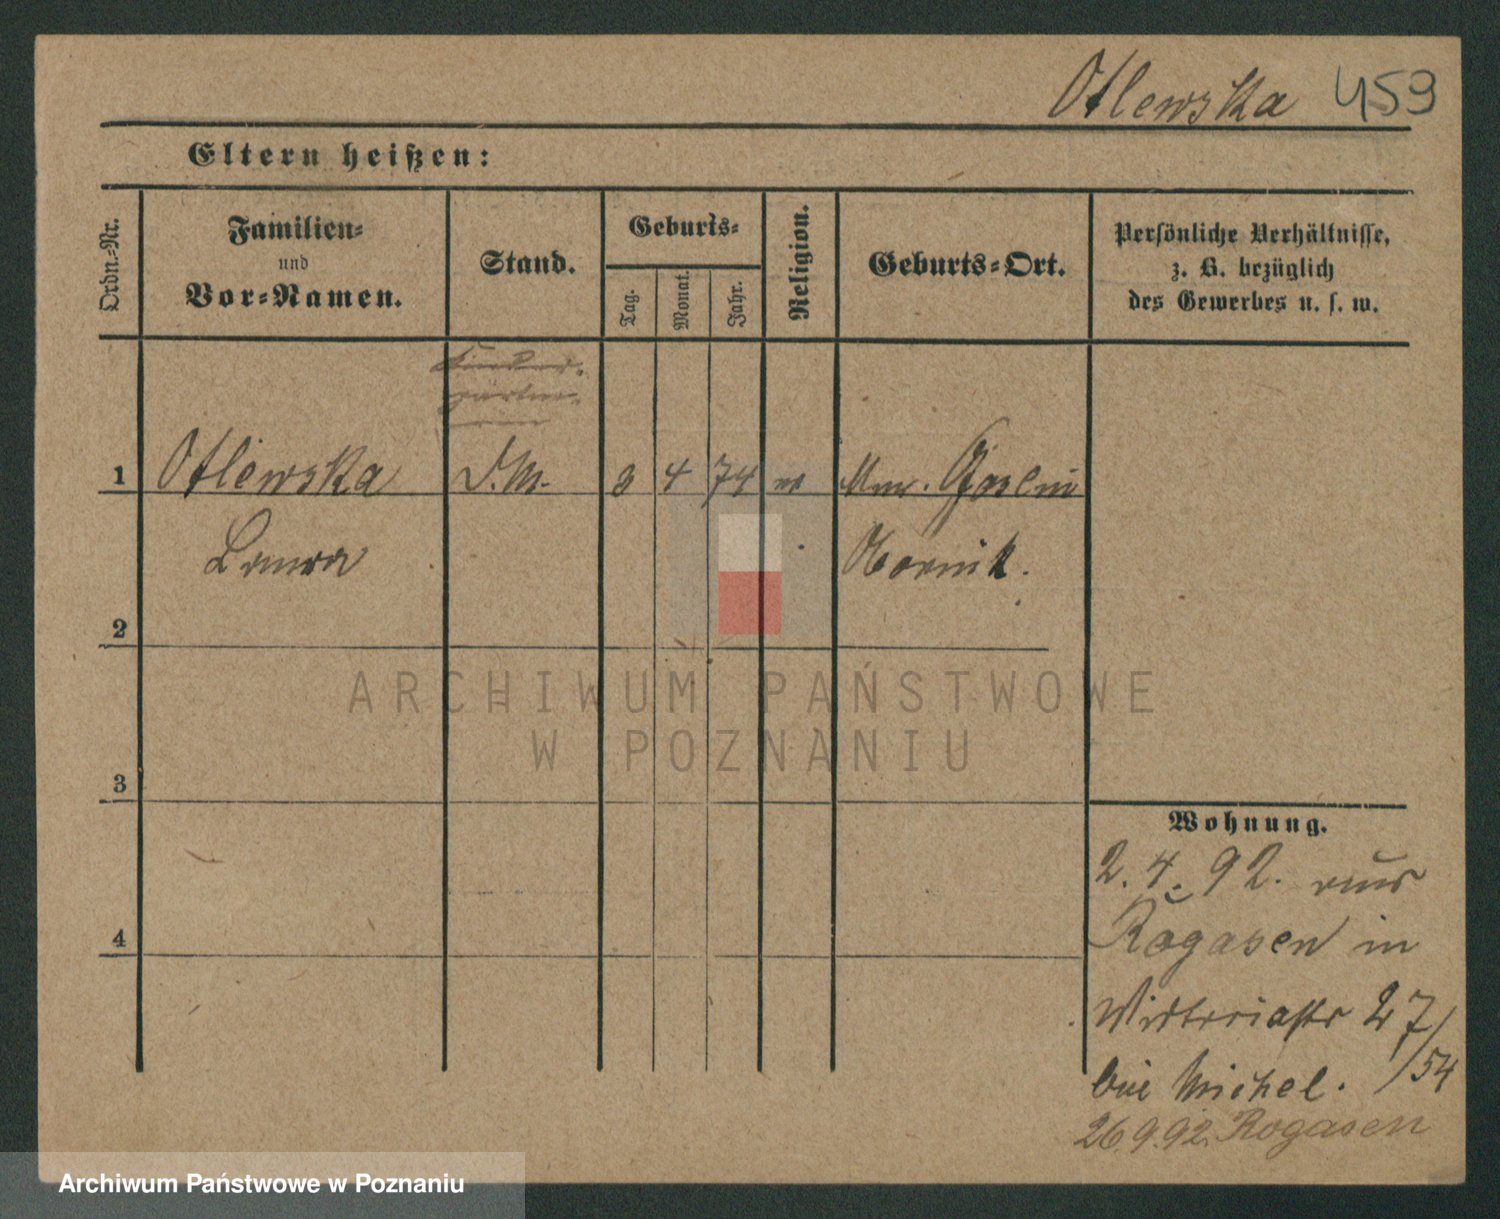 Otlewska 459
Eltern heißen:
Ordn.-Nr.
Familien-
und
Vor-Namen.
Stand.
Geburts-
Tag.
Monat.
Jahr.
Religion.
Geburts-Ort.
Persönliche Verhältnisse,
z. B. bezüglich
des Gewerbes u. s. w.
Kinder-
gärtne-
1 Otlewska D.M. 3 4 74 Mur. Goslin
Laura Obornik.
2
ARCHIWUM PAŃSTWOWE
W POZNANIU
3
Wohnung.
2.4.92. aus
Rogasen in
4
Victoriastr 27/54
bei Michel.
26.9.92. Rogasen
Archiwum Państwowe w Poznaniu